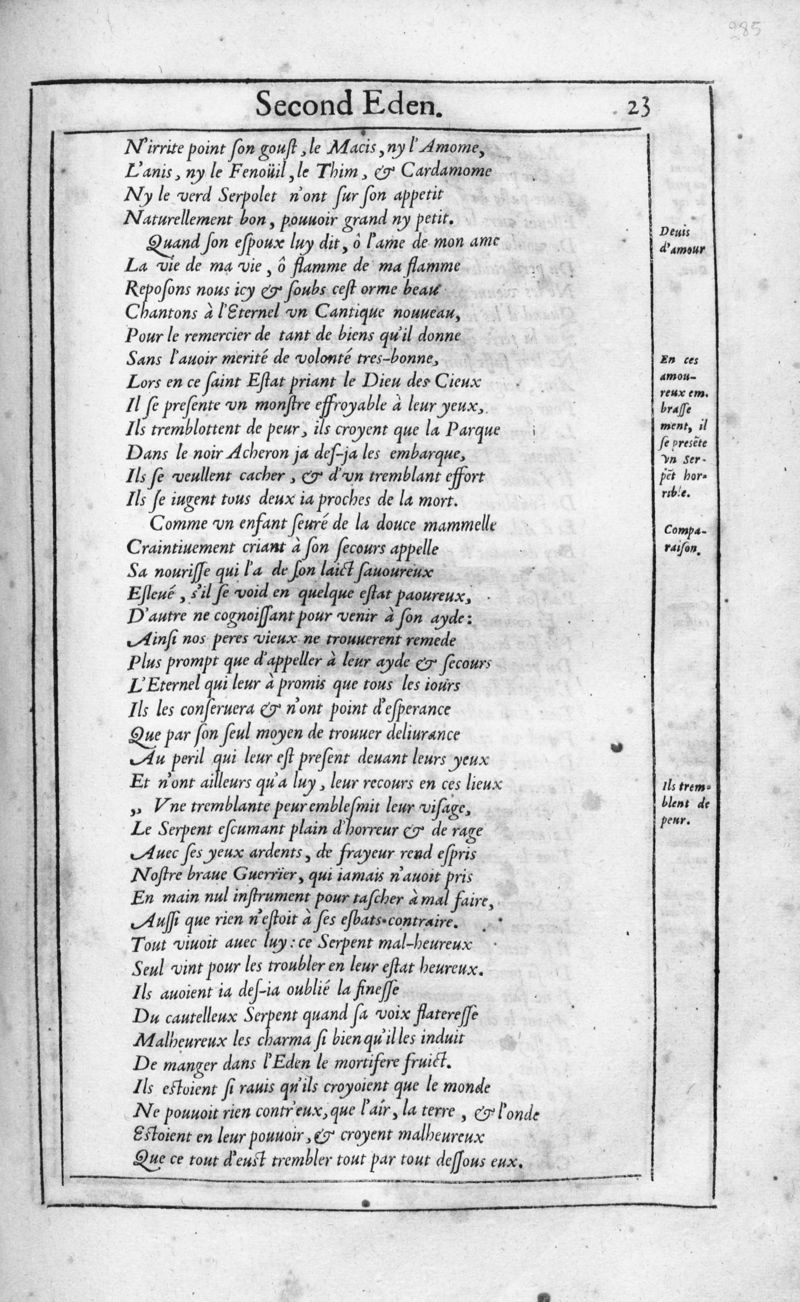 285
Second Eden.
23
N'irrite point ſon gouſt, le Macis, ny l'Amome,
L'anis, ny le Fenoüil, le Thim, & Cardamome
Ny le verd Serpolet n'ont ſur ſon appetit
Naturellement bon, pouuoir grand ny petit.
Quand ſon eſpoux luy dit, ô l'ame de mon ame
La vie de ma vie, ô flamme de ma flamme
Repoſons nous icy & ſoubs ceſt orme beau
Chantons à l'Eternel vn Cantique nouueau,
Pour le remercier de tant de biens qu'il donne
Sans l'auoir merité de volonté tres-bonne,
Lors en ce ſaint Eſtat priant le Dieu des Cieux
Il ſe preſente vn monſtre effroyable à leur yeux,
Ils tremblottent de peur, ils croyent que la Parque
Dans le noir Acheron ja deſ-ja les embarque,
Ils ſe veullent cacher, & d'vn tremblant effort
Ils ſe iugent tous deux ia proches de la mort.
Comme vn enfant ſeuré de la douce mammelle
Craintiuement criant à ſon ſecours appelle
Sa nouriſſe qui l'a de ſon laict ſauoureux
Eſleué, s'il ſe void en quelque eſtat paoureux,
D'autre ne cognoiſſant pour venir à ſon ayde:
Ainſi nos peres vieux ne trouuerent remede
Plus prompt que d'appeller à leur ayde & ſecours
L'Eternel qui leur à promis que tous les iours
Ils les conſeruera & n'ont point d'eſperance
Que par ſon ſeul moyen de trouuer deliurance
Au peril qui leur eſt preſent deuant leurs yeux
Et n'ont ailleurs qu'a luy, leur recours en ces lieux
,, Vne tremblante peur embleſmit leur viſage,
Le Serpent eſcumant plain d'horreur & de rage
Auec ſes yeux ardents, de frayeur rend eſpris
Noſtre braue Guerrier, qui iamais n'auoit pris
En main nul inſtrument pour taſcher à mal faire,
Auſſi que rien n'eſtoit à ſes eſbats contraire.
Tout viuoit auec luy: ce Serpent mal-heureux
Seul vint pour les troubler en leur eſtat heureux.
Ils auoient ia deſ-ia oublié la fineſſe
Du cautelleux Serpent quand ſa voix flatereſſe
Malheureux les charma ſi bien qu'il les induit
De manger dans l'Eden le mortifere fruict.
Ils eſtoient ſi rauis qu'ils croyoient que le monde
Ne pouuoit rien contr'eux, que l'air, la terre, & l'onde
Eſtoient en leur pouuoir, & croyent malheureux
Que ce tout d'euſt trembler tout par tout deſſous eux.
Deuis
d'amour
En ces
amou-
reux em.
braſſe
ment, il
ſe preſẽte
vn Ser-
pẽt hor-
rible.
Compa-
raiſon.
Ils trem-
blent de
peur.